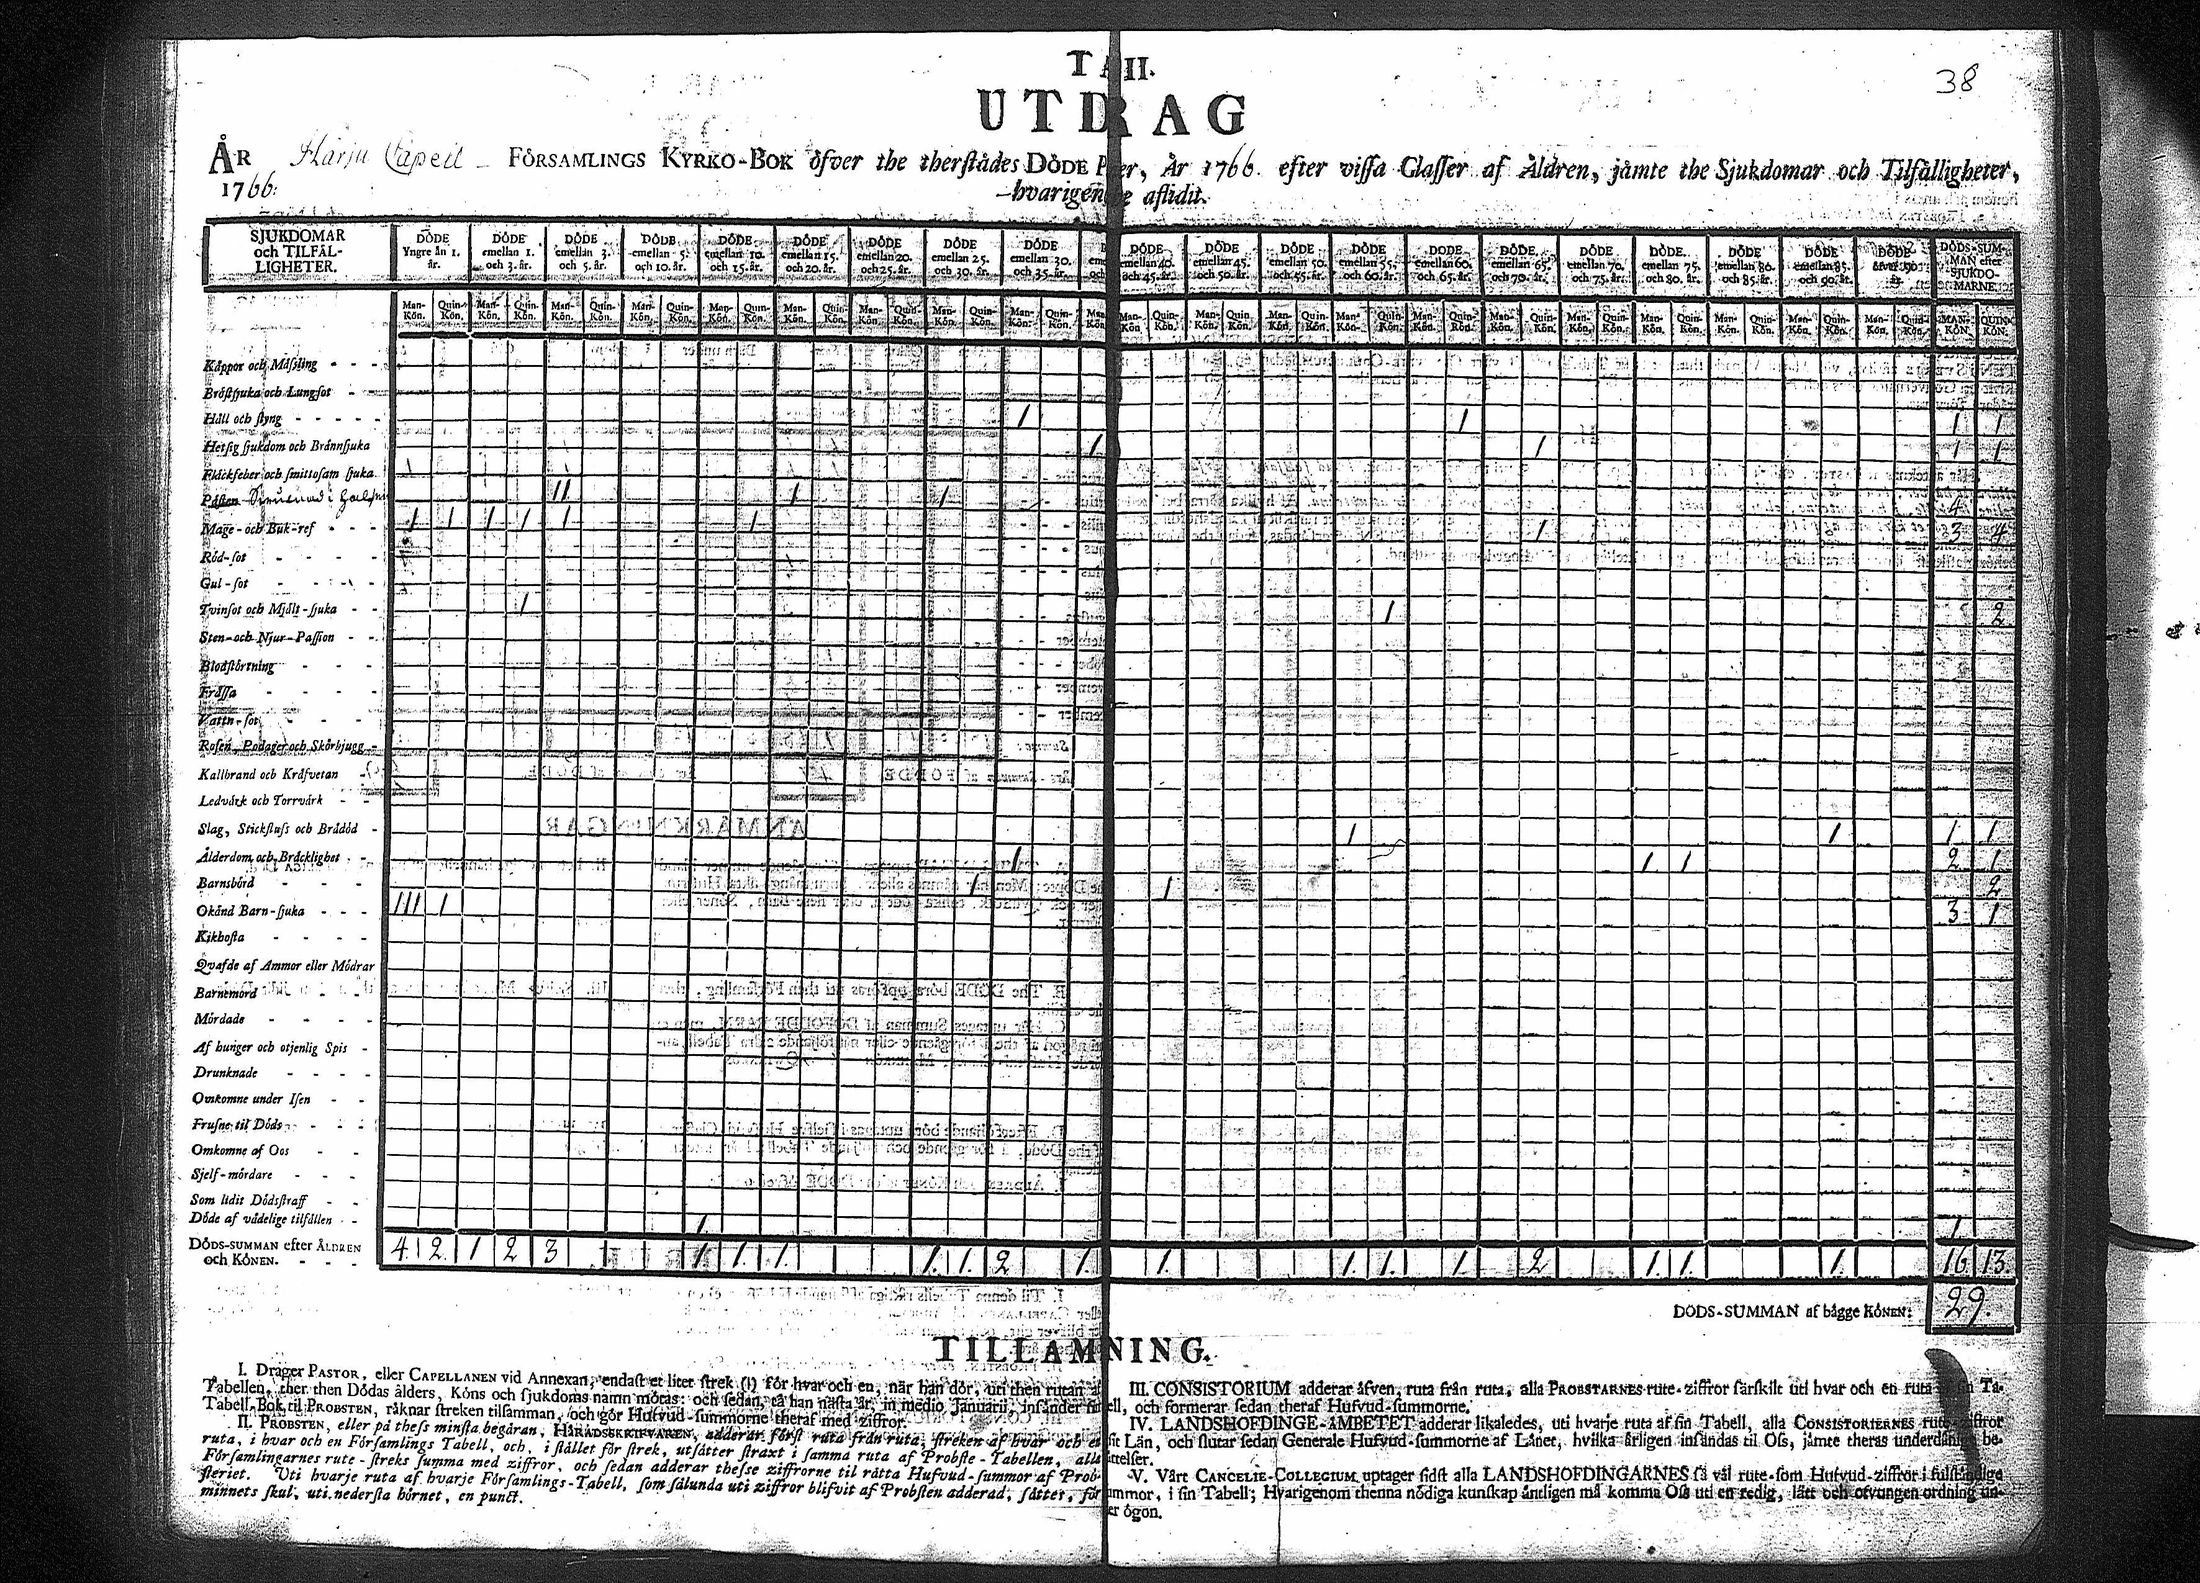 38
T A II.
UTDRAG
ÅR Harju Capell FÖRSAMLINGS KYRKO-BOK öfver the therstädes DÖDE P er, År 1766. efter vissa Classer af Åldren, jämte the Sjukdomar och Tilfälligheter,
1766. hvarigen e aflidit.
SJUKDOMAR och TILFÄL-LIGHETER.
DÖDE Yngre än 1. år.
DÖDE emellan 1. och 3. år.
DÖDE emellan 3. och 5. år.
DÖDE emellan 5. och 10. år.
DÖDE emellan 10. och 15. år.
DÖDE emellan 15. och 20. år.
DÖDE emellan 20. och 25. år.
DÖDE emellan 25. och 30. år.
DÖDE emellan 30. och 35. år.
DÖDE emellan 40. och 45. år.
DÖDE emellan 45. och 50. år.
DÖDE emellan 50. och 55. år.
DÖDE emellan 55. och 60. år.
DÖDE emellan 60. och 65. år.
DÖDE emellan 65. och 70. år.
DÖDE emellan 70. och 75. år.
DÖDE emellan 75. och 80. år.
DÖDE emellan 80. och 85. år.
DÖDE emellan 85. och 90. år.
DÖDE öfver 90 år.
DÖDS-SUMMAN efter SJUKDOMARNE.
Man-Kön. Quin-Kön. Man-Kön. Quin-Kön. Man-Kön. Quin-Kön. Man-Kön. Quin-Kön. Man-Kön. Quin-Kön. Man-Kön. Quin-Kön. Man-Kön. Quin-Kön. Man-Kön. Quin-Kön. Man-Kön. Quin-Kön. Man-Kön. Man-Kön. Quin-Kön. Man-Kön. Quin-Kön. Man-Kön. Quin-Kön. Man-Kön. Quin-Kön. Man-Kön. Quin-Kön. Man-Kön. Quin-Kön. Man-Kön. Quin-Kön. Man-Kön. Quin-Kön. Man-Kön. Quin-Kön. Man-Kön. Quin-Kön. Man-Kön. Quin-Kön. MAN-KÖN. QUIN-KÖN.
Kåppor och Måssling - - -
Bröstsjuka och Lungsot - -
Håll och styng - - - 1 1 1 1
Hetsig sjukdom och Brännsjuka 1 1 1 1
Fläckfeber och smittosam sjuka
Pästen II 1 1 4
Mage- och Buk-ref - - - 1 1 1 1 1 1 1 3 4
Röd-sot - - - -
Gul-sot - - - -
Tvinsot och Mjält-sjuka - - 1 1 2
Sten- och Njur-Passion - -
Blodstörtning - - -
Frässa - - - -
Vattn-sot - - -
Rosen, Podager och Skörbjugg -
Kallbrand och Kräfvetan -
Ledvärk och Torrvärk - -
Slag, Stickfluss och Brådöd - 1 1 1 1
Ålderdom och Bräcklighet - 1 1 1 2 1
Barnsbörd - - - 1 1 2
Okänd Barn-sjuka - - - III 1 3 1
Kikhosta - - - -
Qvafde af Ammor eller Mödrar
Barnemord - - -
Mördade - - - -
Af hunger och otjenlig Spis -
Drunknade - - - -
Omkomne under Isen - -
Frusne til Döds - - -
Omkomne af Oos - -
Sjelf-mördare - - -
Som lidit Dödsstraff - -
Döde af vådelige tilfällen - - 1 1
DÖDS-SUMMAN efter ÅLDREN och KÖNEN. - - - 4 2 1 2 3 1. 1. 1. 1. 1. 2 1. 1. 1. 1. 1. 2 1. 1. 1. 16 13.
DÖDS-SUMMAN af bägge KÖNEN: 29.
TILLÄMNING.
I. Drager PASTOR, eller CAPELLANEN vid Annexan, endast et litet strek (1) för hvar och en, när han dör, uti then rutan af
Tabellen, ther then Dödas ålders, Köns och sjukdoms namn mötas: och sedan, tå han nästa år, in medio Januarii, insänder sin
Tabell-Bok til PROBSTEN, räknar streken tilsamman, och gör Hufvud-summorne theraf med ziffror.
II. PROBSTEN, eller på thess minsta begäran, HÄRADSSKRIFVAREN, adderar först ruta från ruta, streken af hvar och en
ruta, i hvar och en Församlings Tabell, och, i stället för strek, utsätter straxt i samma ruta af Probste-Tabellen, alla
Församlingarnes rute-streks summa med ziffror, och sedan adderar thesse ziffrorne til rätta Hufvud-summor af Prob-
steriet. Uti hvarje ruta af hvarje Församlings-Tabell, som sålunda uti ziffror blifvit af Probsten adderad, sätter, för
minnets skul, uti nedersta hörnet, en punct.
III. CONSISTORIUM adderar äfven, ruta från ruta, alla PROBSTARNES rute-ziffror särskilt uti hvar och en ruta af sin Ta-
ell, och formerar sedan theraf Hufvud-summorne.
IV. LANDSHÖFDINGE-ÄMBETET adderar likaledes, uti hvarje ruta af sin Tabell, alla CONSISTORIERNES rute-ziffror
sit Län, och slutar sedan Generale Hufvud-summorne af Länet, hvilka årligen insändas til Oss, jämte theras underdånige be-
ättelser.
V. Vårt CANCELIE-COLLEGIUM uptager sidst alla LANDSHÖFDINGARNES så väl rute-som Hufvud-ziffror i fulständige
ummor, i sin Tabell; Hvarigenom thenna nödiga kunskap äntligen må komma Oss uti en redig, lätt och otvungen ordning un-
er ögon.